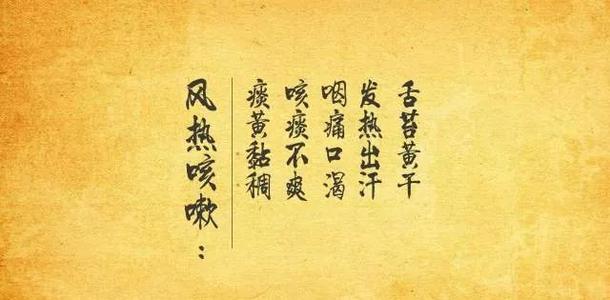 风热咳嗽：
痰黄黏稠
咳痰不爽
咽痛口渴
发热出汗
舌苔黄干